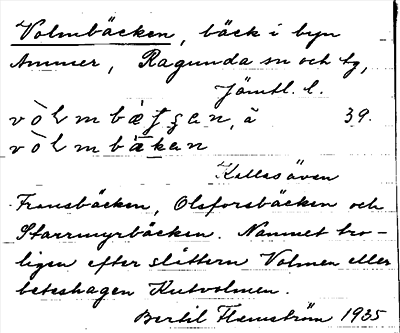 Volmbäcken, bäck i byn
Ammer, Ragunda sn och tg,
Jämtl. l.
vòlmbäʃʂen, ä 39.
vòlmbäken
Kallas även
Fransbäcken, Olsforsbäcken och
Starrmyrbäcken. Namnet tro-
ligen efter slåttern Volmen eller
beteshagen Kutvolmen.
Bertil Flemström 1935